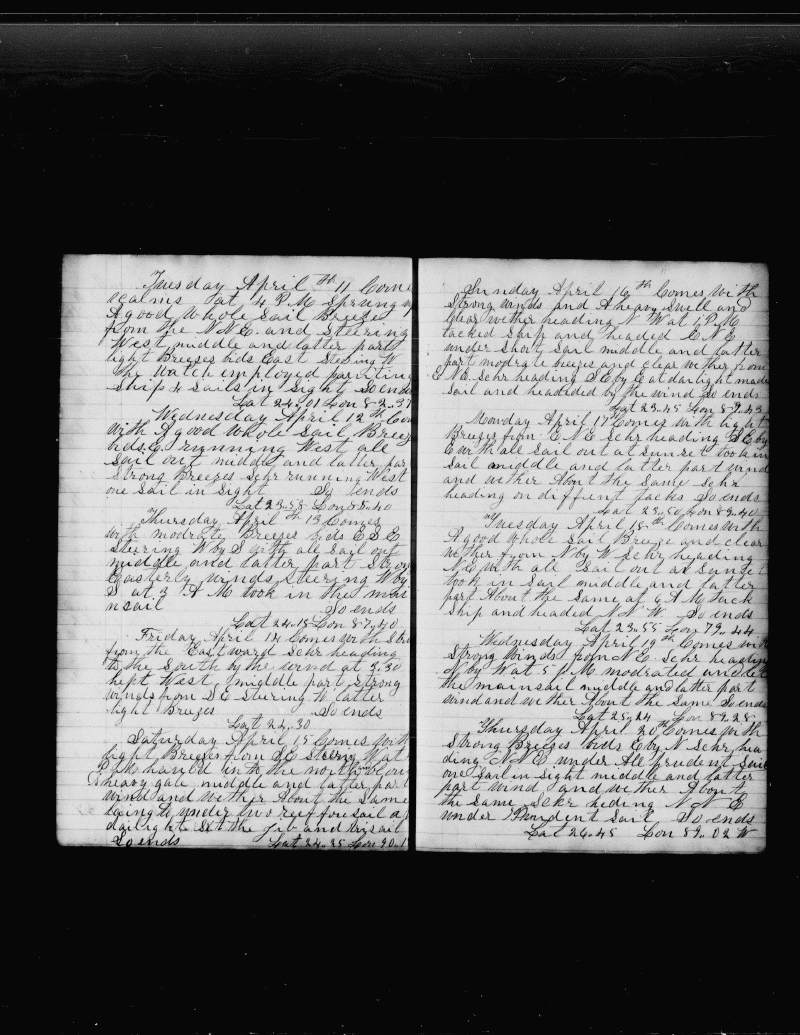 Tuesday April 11th Com
calms at 4 P.M. Sprung
A good Whole Sail Breeze
from the N N E. and Steering
West middle and latter part
light Breezes bids East Steering W
the Watch employed painting
Ship 4 Sails in Sight So ends
Lat 24..01 Lon 82..37
Wednesday April 12th Com
with A good Whole Sail Breez
bids E. running West all
Sail out middle and latter par
Strong Breezes Schr running West
one Sail in Sight So ends
Lat 23..58 Lon 85..40
Thursday April 13th Comes
with modrate Breezes bids E S E
Steering W by S with all Sail out
middle and latter part Stron
Easterly winds Steering W by
S at 3 A M took in the mai
nsail So ends
Lat 24..15 Lon 87..40
Friday April 14 Comes with Stro
from the Eastward Schr heading
to the South by the wind at 3.30
kept West middle part Strong
winds from S E Stering W latter
light Breezes So ends
Lat 24..30
Saturday April 15 Comes with
light Breezes from S E Stern W at
P.M. hauled in to the north
heavy gale middle and latter part
wind and wether About the Same
laying to under two reef foresail a
daylight Set the jib and trisail
So ends Lat 24..25 Lon 90..1
Sunday April 16th Comes with
Strong winds and A heavy Swell and
Clear wether heading N W at 1 P M
tacked Ship and headed E N E
under Short Sail middle and latter
part modrate breezes and clear wether from
E N E. Schr heading S E by E at darlight made
Sail and headded by the wind So ends
Lat 23..45 Lon 89..43
Monday April 17 Comes with light
Breezes from E N E Schr heading S E by
E with all Sail out at Sunset took in
Sail middle and latter part wind
and wether About the Same Schr
heading on diffrent Tacks So ends
Lat 23..50 Lon 89..40
Tuesday April 18th Comes with
A good whole Sail Breeze and clear
wether from N by W Schr heading
N E with all Sail out at Sunset
took in Sail middle and latter
part About the Same at 4 A M tuck
Ship and headed N N W So ends
Lat 23..55 Lon 79..44
Wednesday April 19th Comes with
Strong Winds from N E Schr heading
N by W at 5 P M modrated and Set
the mainsail middle and latter part
wind and wether About the Same So ends
Lat 25..24 Lon 89..28
Thursday April 20th Comes with
Strong Breezes bids E by N Schr hea
ding N N E under All prudent Sail
one Sail in Sight middle and latter
part wind and wether About
the Same Schr heding N N E
under Prudent Sail So ends
Lat 26..45 Lon 89..02 W